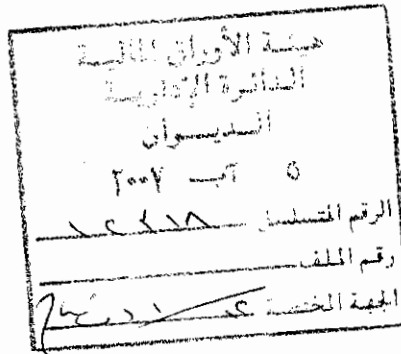 هيئة الأوراق المالية
الدائرة الإدارية
الديوان
٥ آب ٢٠٠٧
الرقم المتسلسل
رقم الملف
الجهة المختصة